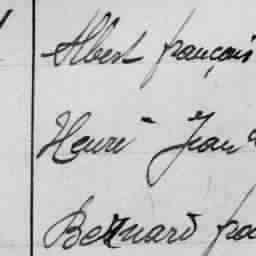 Albert françois
Henri Jean
Bernard